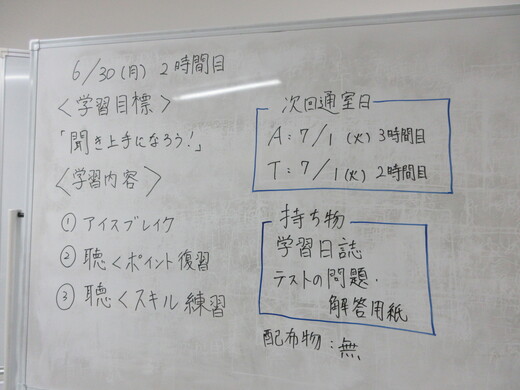 6/30(月) 2時間目
<学習目標>
「聞き上手になろう!」
<学習内容>
① アイスブレイク
② 聴くポイント復習
③ 聴くスキル練習
次回通室日
A:7/1(火)3時間目
T:7/1(火)2時間目
持ち物
学習日誌
テストの問題・
解答用紙
配布物:無